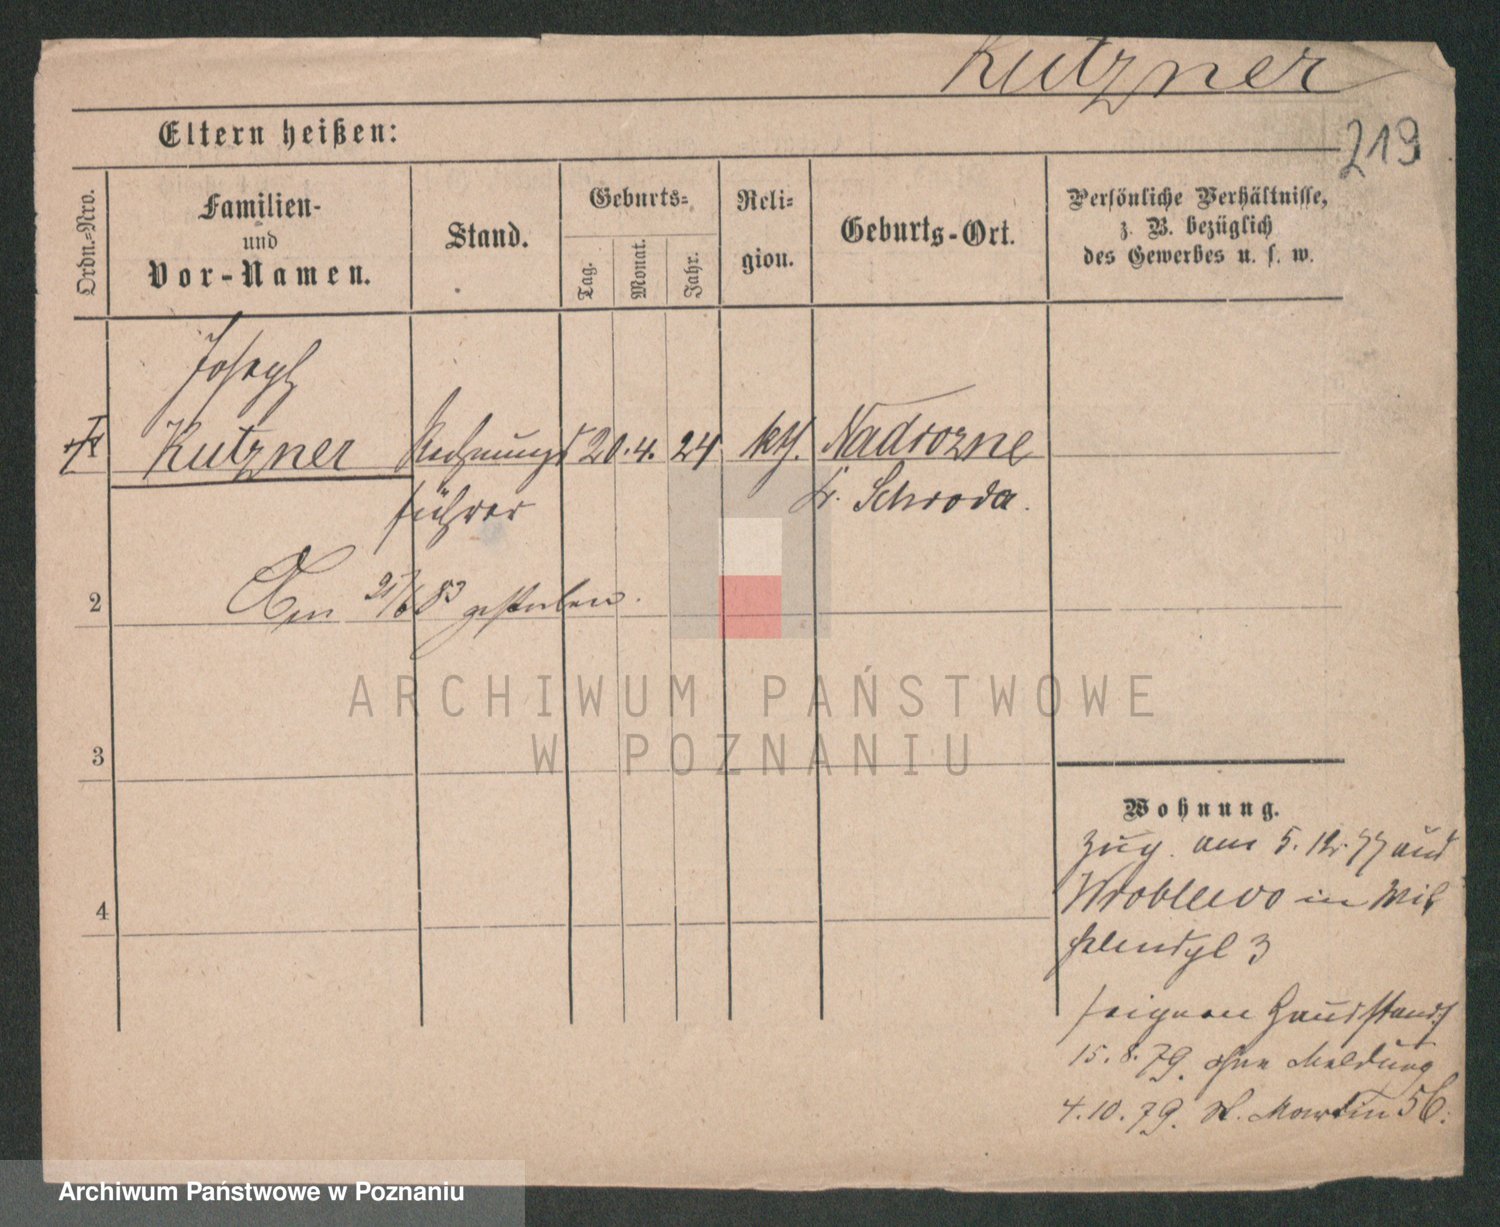 Kutzner
219
Eltern heißen:
Ordn.-Nro.
Familien-
und
Vor-Namen.
Stand.
Geburts-
Tag.
Monat.
Jahr.
Reli-
gion.
Geburts-Ort.
Persönliche Verhältnisse,
z. B. bezüglich
des Gewerbes u. s. w.
Joseph
Kutzner
Rechnungs
führer
20. 4. 24
kth.
Nadrozne
Kr. Schroda.
2
Am 83 gestorben.
3
4
ARCHIWUM PAŃSTWOWE
W POZNANIU
Wohnung.
Zug. am 5. 12. 77 aus
Wroblewo in
3
eignen Hausstand
15. 8. 79. ohne Meldung
4. 10. 79. St. Martin 56.
Archiwum Państwowe w Poznaniu